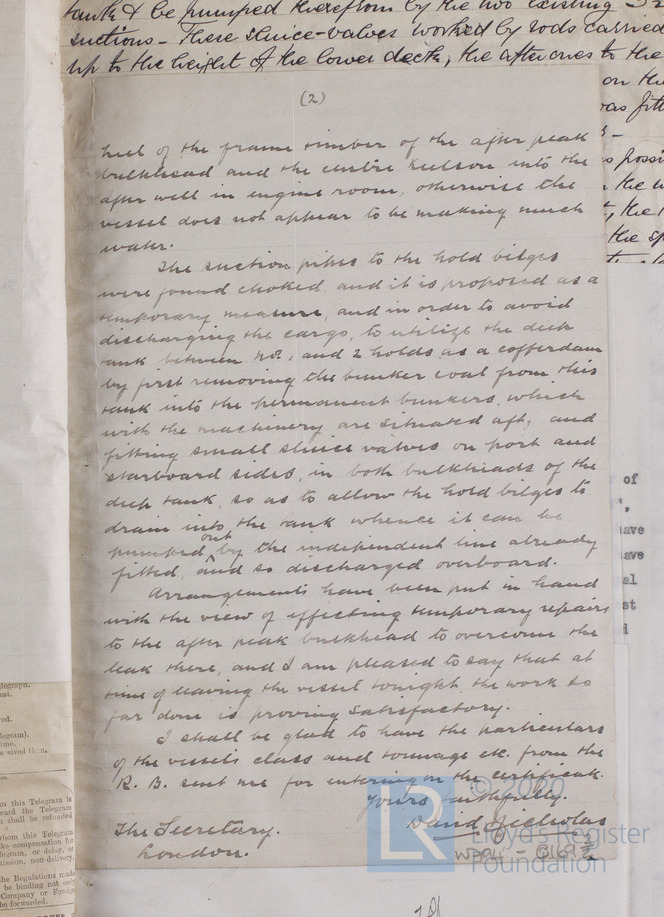 tank & be pumped therefrom by the two existing
suctions - These sluice-valves worked by rods carried
up to the height of the lower deck, the after ones to the
on the
was fitt
possi
the
the
the sp
(2)
heel of the frame timber of the after peak
bulkhead and the centre keelson into the
after well in engine room, otherwise the
vessel does not appear to be making much
water.
The suction pipes to the hold bilges
were found choked, and it is proposed as a
temporary measure, and in order to avoid
discharging the cargo, to utilize the deep
tank between No. 1 and 2 holds as a cofferdam
by first removing the bunker coal from this
tank into the permanent bunkers, which
with the machinery are situated aft, and
fitting small sluice valves on port and
starboard sides, in both bulkheads of the
deep tank, so as to allow the hold bilges to
drain into the tank whence it can be
pumped out by the independent line already
fitted, and so discharged overboard.
Arrangements have been put in hand
with the view of effecting temporary repairs
to the after peak bulkhead to overcome the
leak there, and I am pleased to say that at
time of leaving the vessel tonight, the work so
far done is proving satisfactory.
I shall be glad to have the particulars
of the vessels class and tonnage etc. from the
R. B. sent me for entering on the certificate.
Yours faithfully.
David Nicholas
The Secretary.
London.
W294 - 0169
of
have
have
al
st
d
elegraph.
ost.
red.
legram).
ime.
om this Telegram is
ward the Telegram
shall be refunded
hom this Telegram
ke compensation for
legram, or delay, or
mission, non-delivery,
he Regulations made
be binding not only
Company or Foreign
be forwarded.
LR
© 2020
Lloyd's Register
Foundation